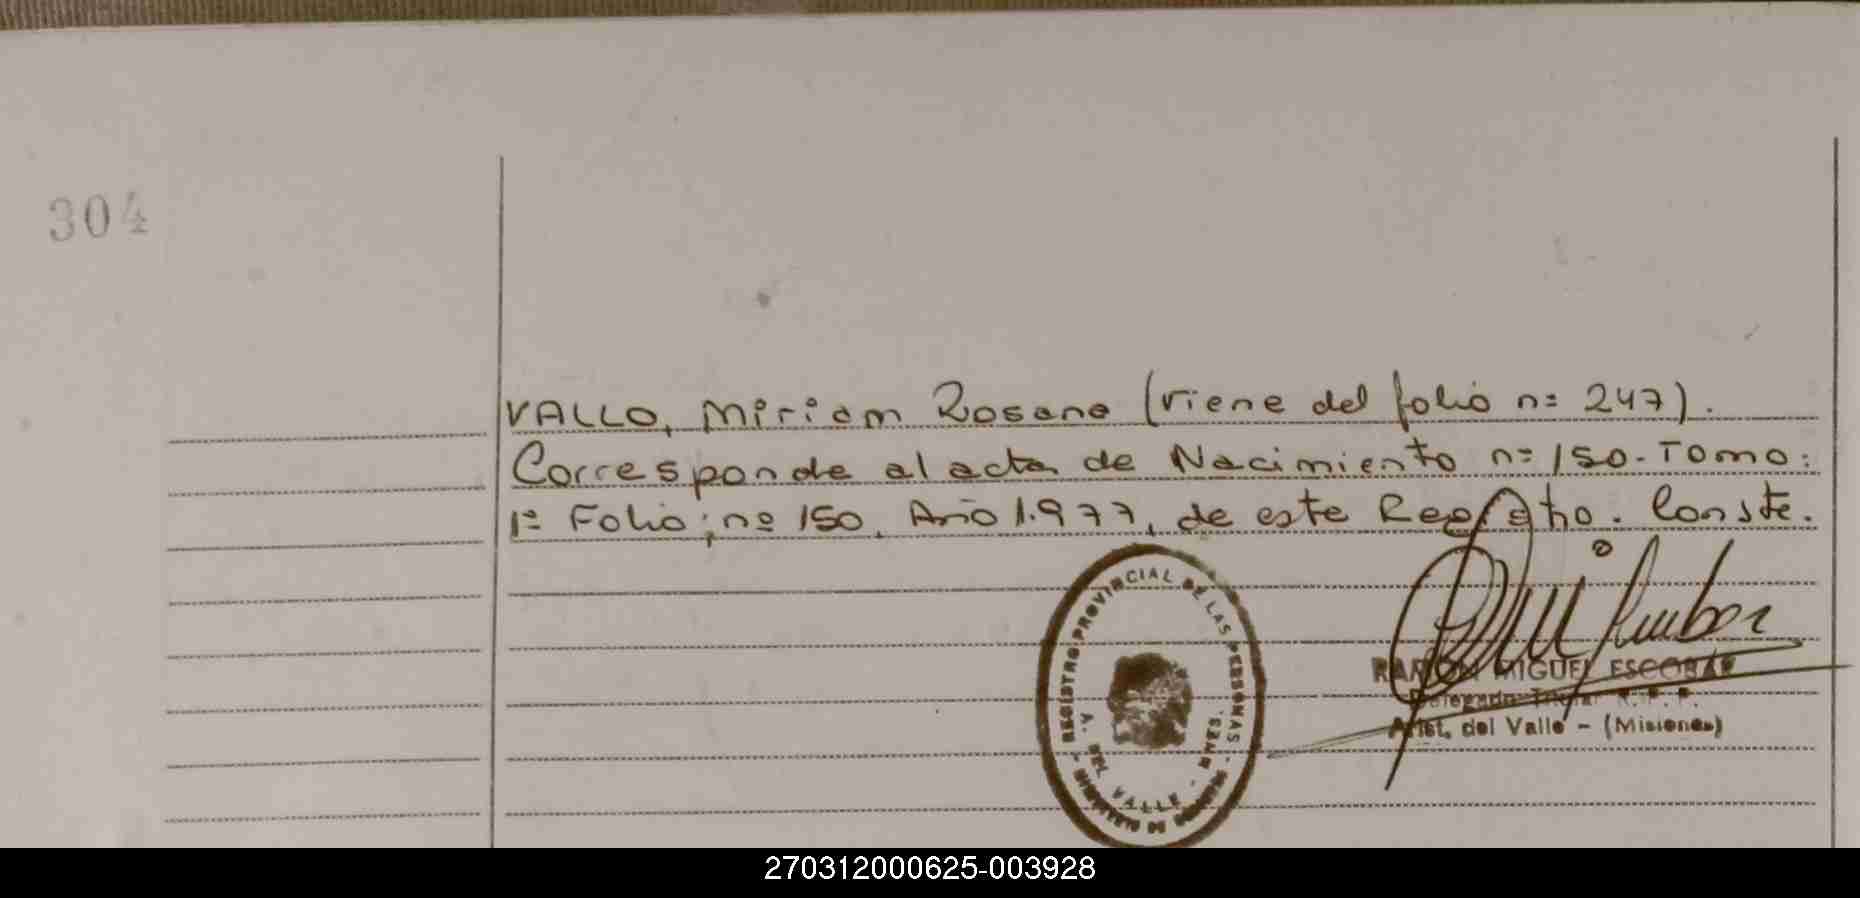 304
VALLO, Miriam Rosana (viene del folio nº 247).
Corresponde al acta de Nacimiento nº 150-Tomo:
1º Folio; nº 150, Año 1.977, de este Registro. Conste.
REGISTRO PROVINCIAL DE LAS PERSONAS
A. DEL VALLE - MNES.
RAMON MIGUEL ESCOBAR
Delegado Titular R.P.P.
Arist. del Valle - (Misiones)
270312000625-003928